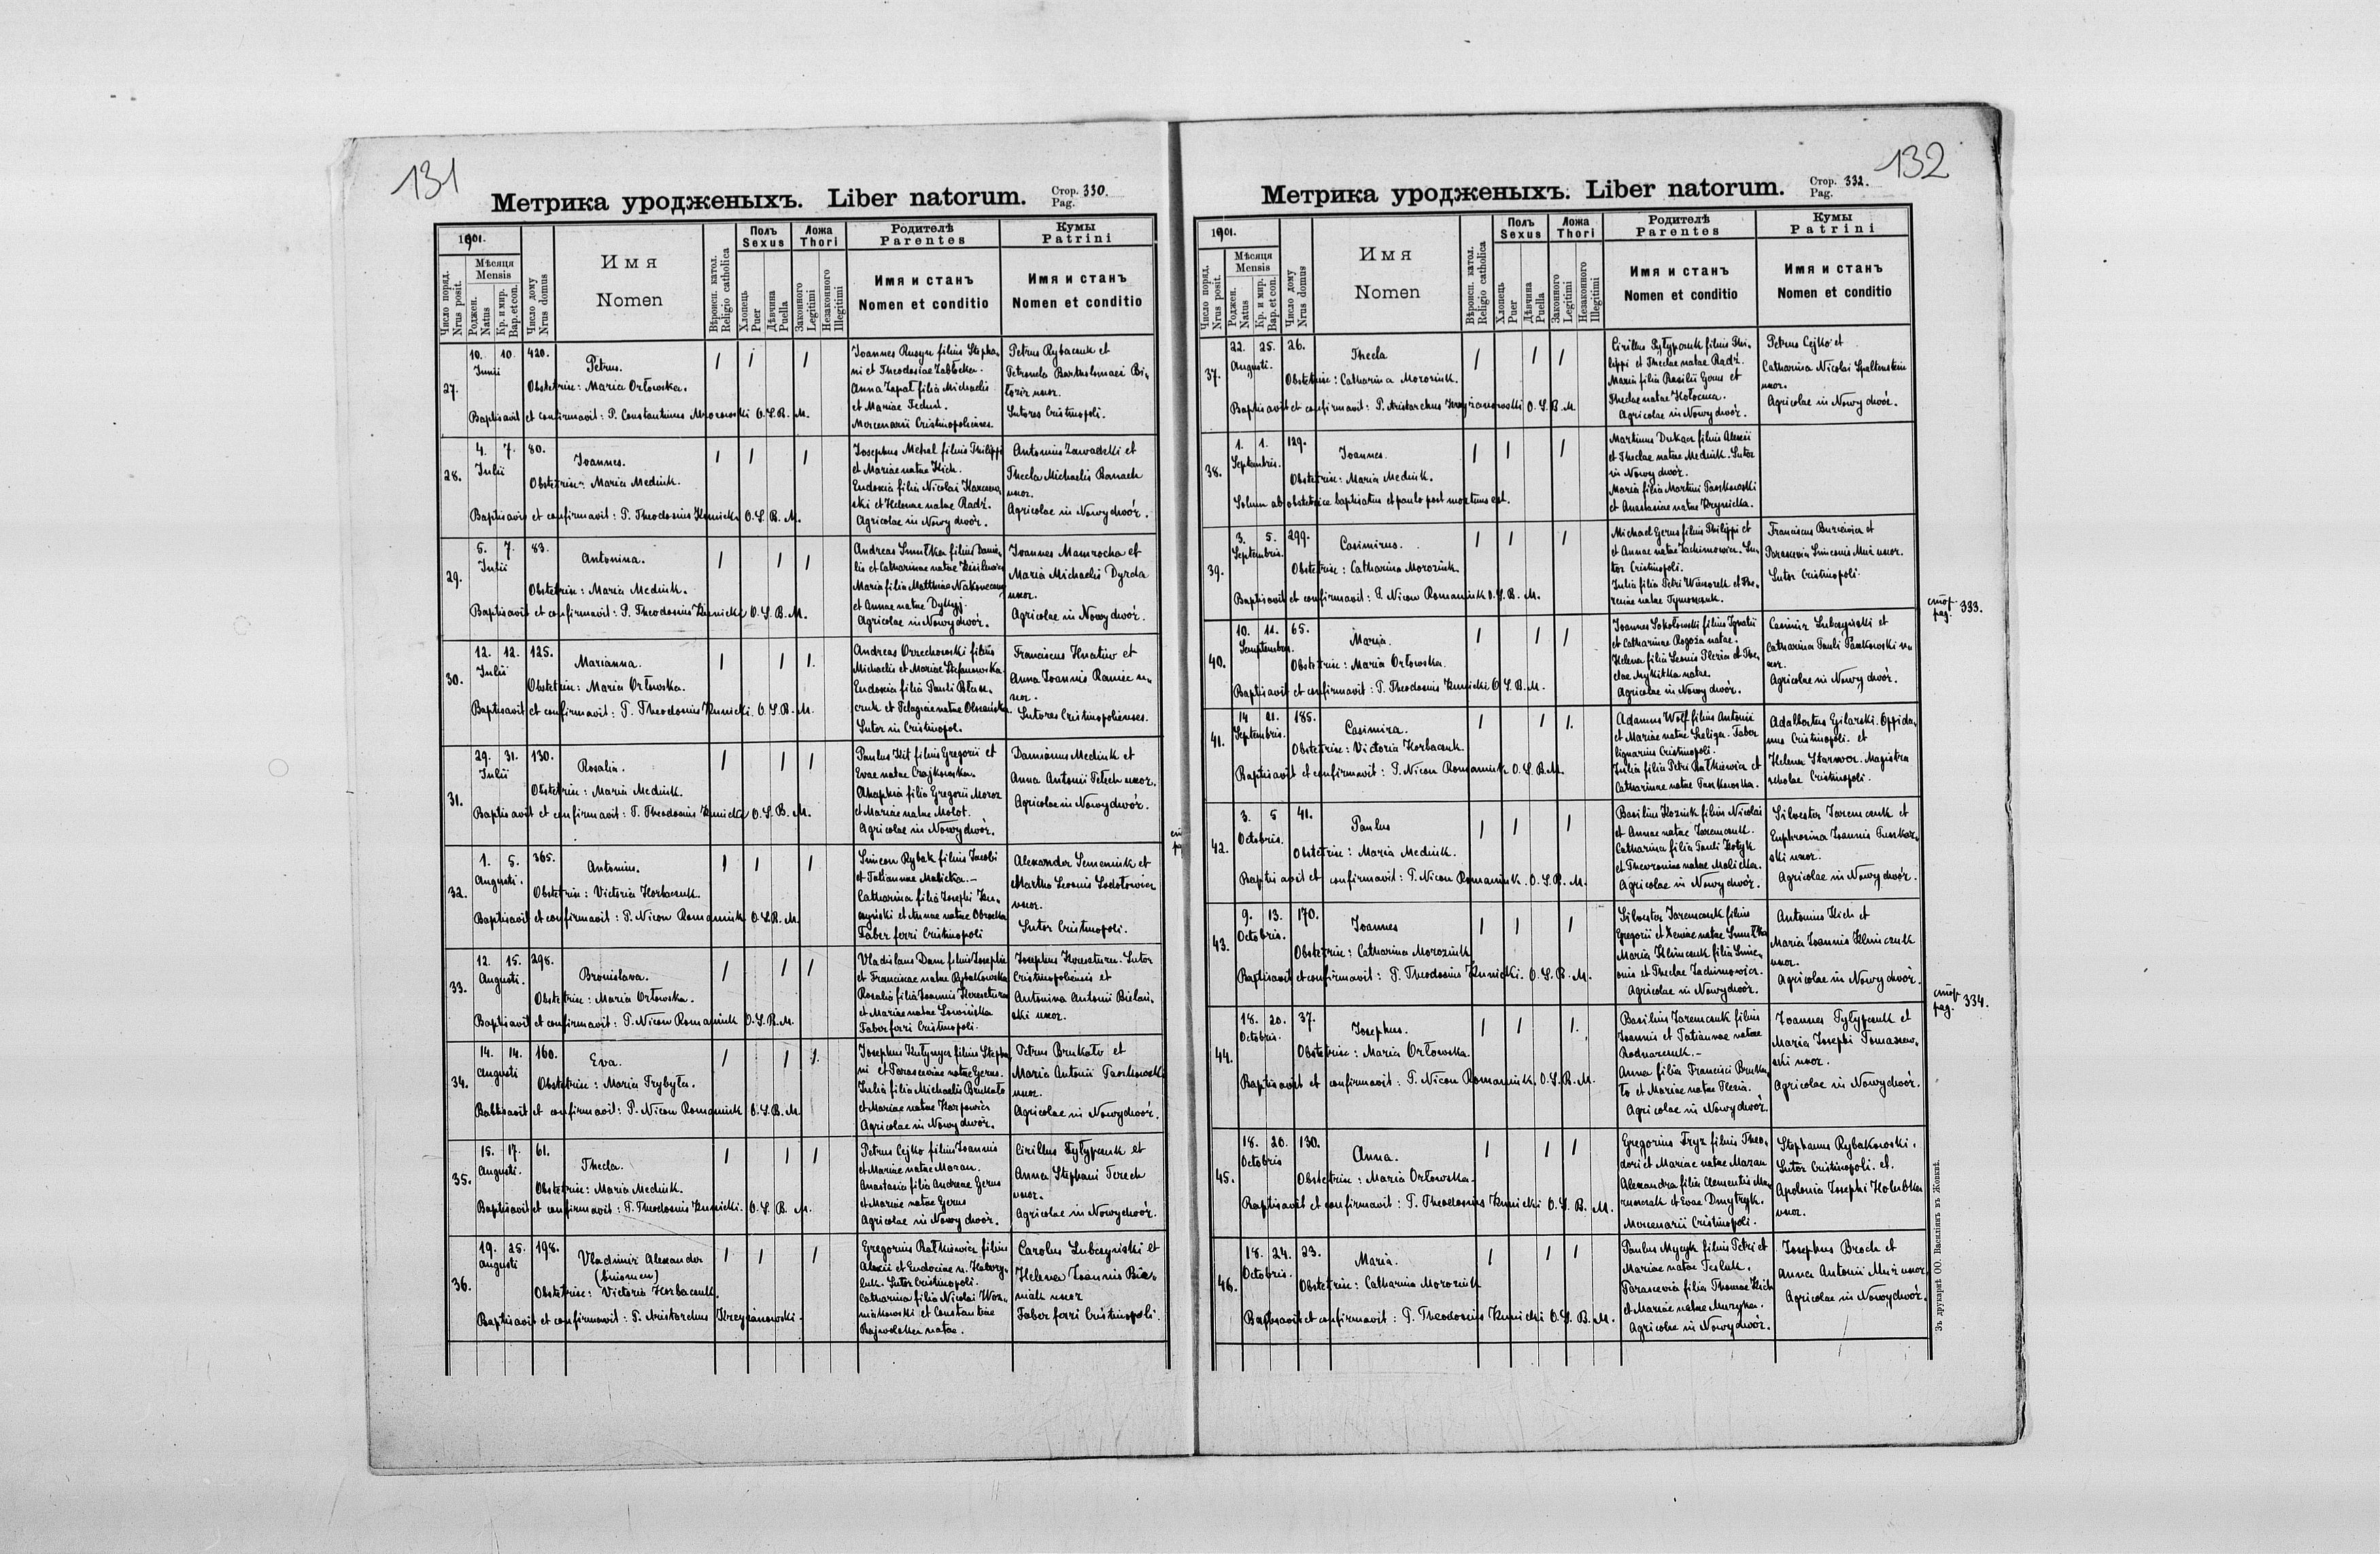 131
Метрика уродженыхъ. Liber natorum.
Стор. 330.
Pag.
1901.
Число поряд.
Nrus posit.
Мѣсяця
Mensis
Роджен.
Natus
Кр. и мир.
Bap. et con.
Число дому
Nrus domus
Имя
Nomen
Вѣроисп. катол.
Religio catholica
Полъ
Sexus
Хлопець
Puer
Дѣвчина
Puella
Ложа
Thori
Законного
Legitimi
Незаконного
Illegitimi
Родителѣ
Parentes
Имя и станъ
Nomen et conditio
Кумы
Patrini
Имя и станъ
Nomen et conditio
27.
10. 10. 420.
Junii
Petrus.
Obstetrix: Maria Orłowska.
Baptisavit et confirmavit: P. Constantinus O. S. B. M.
Joannes Rusyn filius Stepha-
ni et Theodosiae Zabłocka.
Anna Zapał filia Michaelis
et Mariae Fedun.
Mercenarii Cristinopolienses.
Petrus Rybaczuk et
Petronela Bartholomaei
uxor.
Sutores Cristinopoli.
28.
4. 7. 80.
Julii
Joannes.
Obstetrix: Maria Mediuk.
Baptisavit et confirmavit: P. Theodosius Kunicki O. S. B. M.
Josephus Mechal filius Philippi
et Mariae natae Kich.
Eudoxia filia Nicolai
et Helenae natae Radź.
Agricolae in Nowy dwór.
Antonius Zawadzki et
Thecla Michaelis Banach
uxor.
Agricolae in Nowy dwór.
29.
5. 7. 83.
Julii
Antonina.
Obstetrix: Maria Mediuk.
Baptisavit et confirmavit: P. Theodosius Kunicki O. S. B. M.
Andreas Smułka filius Danie-
lis et Catharinae natae
Maria filia Matthiae
et Annae natae
Agricolae in Nowy dwór.
Joannes Mamrocha et
Maria Michaelis Dyrda
uxor.
Agricolae in Nowy dwór.
30.
12. 12. 125.
Julii
Marianna.
Obstetrix: Maria Orłowska.
Baptisavit et confirmavit: P. Theodosius Kunicki. O. S. B. M.
Andreas Orzechowski filius
Michaelis et Mariae Stefanowska.
Eudoxia filia Pauli
et Pelagiae natae
Sutor in Cristinopol.
Franciscus Hnatiw et
Anna Joannis Raniec u-
xor.
Sutores Cristinopolienses.
31.
29. 31. 130.
Julii
Rosalia.
Obstetrix: Maria Mediuk.
Baptisavit et confirmavit: P. Theodosius Kunicki O. S. B. M.
Paulus Kit filius Gregorii et
Evae natae Czajkowska.
Ahaphia filia Gregorii Moroz
et Mariae natae Molot.
Agricolae in Nowy dwór.
Damianus Mediuk et
Anna Antonii Petech uxor.
Agricolae in Nowy dwór.
32.
1. 5. 365.
Augusti.
Antonius.
Obstetrix: Victoria Horbaczuk.
Baptisavit et confirmavit: P. Nicon Romaniuk O. S. B. M.
Simeon Rybak filius Jacobi
et Tatiannae Malicka.-
Catharina filia Josephi
et Annae natae
Faber ferri Cristinopoli
Alexander Semeniuk et
Martha Leonis
uxor.
Sutor Cristinopoli.
33.
12. 15. 298.
Augusti.
Bronislava.
Obstetrix: Maria Orłowska.
Baptisavit et confirmavit: P. Nicon Romaniuk O. S. B. M.
Vladislaus Dam filius Josephi
et Franciscae natae Rybakowska
Rosalia filia Joannis
et Mariae natae
Faber ferri Cristinopoli.
Josephus Sutor
Cristinopoliensis et
Antonina Antonii Bielań-
ski uxor.
34.
14. 14. 160.
Augusti
Eva.
Obstetrix: Maria Trybyła.
Babtisavit et confirmavit: P. Nicon Romaniuk O. S. B. M.
Josephus filius Stepha-
ni et Parasceviae natae Gerus.
Julia filia Michaelis Brukało
et Mariae natae Karpowicz
Agricolae in Nowy dwór.
Petrus Brukało et
Maria Antonii
uxor.
Agricolae in Nowy dwór.
35.
15. 17. 61.
Augusti.
Thecla.
Obstetrix: Maria Mediuk.
Baptisavit et confirmavit: P. Theodosius Kunicki. O. S. B. M.
Petrus Cejko filius Joannis
et Mariae natae Mazan.
Anastasia filia Andreae Gerus
et Mariae natae Gerus
Agricolae in Nowy dwór.
Cirillus Pyłypczuk et
Anna Stephani Terech
uxor.
Agricolae in Nowy dwór.
36.
19. 25. 198.
Augusti
Vladimir Alexander
(binomen)
Obstetrix: Victoria Horbaczuk.
Baptisavit et confirmavit: P. Aristarchus Kryżanowski.
Gregorius Rałkiewicz filius
Alexii et Eudociae n.
Sutor Cristinopoli.
Catharina filia Nicolai Woź-
niakowski et Constantiae
natae.
Carolus Lubczyński et
Helena Joannis
uxor
Faber ferri Cristinopoli.
132
Метрика уродженыхъ. Liber natorum.
Стор. 332.
Pag.
1901.
Число поряд.
Nrus posit.
Мѣсяця
Mensis
Роджен.
Natus
Кр. и мир.
Bap. et con.
Число дому
Nrus domus
Имя
Nomen
Вѣроисп. катол.
Religio catholica
Полъ
Sexus
Хлопець
Puer
Дѣвчина
Puella
Ложа
Thori
Законного
Legitimi
Незаконного
Illegitimi
Родителѣ
Parentes
Имя и станъ
Nomen et conditio
Кумы
Patrini
Имя и станъ
Nomen et conditio
37.
22. 25. 26.
Augusti.
Thecla
Obstetrix: Catharina Moroziuk.
Baptisavit et confirmavit: P. Aristarchus Kryżanowski O. S. B. M
Cirillus Pyłypczuk filius Phi-
lippi et Theclae natae Radź.
Maria filia Basilii Gerus et
Theclae natae
Agricolae in Nowy dwór.
Petrus Cejko et
Catharina Nicolai Spaltenstein
uxor.
Agricolae in Nowy dwór.
38.
1. 1. 129.
Septembris.
Joannes.
Obstetrix: Maria Mediuk.
Solum ab obstetrice baptisatus et paulo post mortuus est.
Martinus Dukacz filius Alexii
et Theclae natae Mediuk. Sutor
in Nowy dwór.
Maria filia Martini Paszkowski
et Anastasiae natae Krynicka.
39.
3. 5. 299.
Septembris.
Casimirus.
Obstetrix: Catharina Moroziuk.
Baptisavit et confirmavit: P. Nicon Romaniuk O. S. B. M.
Michael Gerus filius Philippi et
et Annae natae Jachimowicz. Su-
tor Cristinopoli.
Julia filia Petri et The-
natae Tymoszczuk.
Franciscus et
Parascevia Simeonis uxor.
Sutor Cristinopoli.
стор.
pag. 333.
40.
10. 12. 65.
Septembris.
Maria.
Obstetrix: Maria Orłowska.
Baptisavit et confirmavit: P. Theodosius Kunicki O. S. B. M.
Joannes Sokołowski filius Ignatii
et Catharinae Rogoża natae.
Helena filia Leonis et The-
clae Mykitka natae.
Agricolae in Nowy dwór.
Casimir Lubczyński et
Catharina Pauli Paszkowski u-
xor.
Agricolae in Nowy dwór.
41.
14 21. 185.
Septembris.
Casimira.
Obstetrix: Victoria Horbaczuk.
Baptisavit et confirmavit: P. Nicon Romaniuk O. S. B. M.
Adamus Wolf filius Antonii
et Mariae natae Szeliga. Faber
lignarius Cristinopoli.
Julia filia Petri Rałkiewicz et
Catharinae natae Paszkowska.
Adalbertus Gilarski. Oppida-
nus Cristinopoli. et
Helena Starwoz. Magistra
scholae Cristinopoli.
42.
3. 5 41.
Octobris.
Paulus
Obstetrix: Maria Mediuk.
Baptisavit et confirmavit: P. Nicon Romaniuk. O. S. B. M.
Basilius Koziuk filius Nicolai
et Annae natae Jaremczuk.
Catharina filia Pauli Kotyk
et Thevroniae natae Malicka.
Agricolae in Nowy dwór.
Silvester Jaremczuk et
Euphrosina Joannis Puszkar-
ski uxor.
Agricolae in Nowy dwór.
43.
9. 13. 170.
Octobris.
Joannes
Obstetrix: Catharina Moroziuk
Baptisavit et confirmavit: P. Theodosius Kunicki. O. S. B. M.
Silvester Jaremczuk filius
Gregorii et Xeniae natae Smułka
Maria Klimczuk filia Sime-
onis et Theclae Jachimowicz.
Agricolae in Nowy dwór.
Antonius Kich et
Maria Joannis Klimczuk
uxor.
Agricolae in Nowy dwór.
стор.
pag. 334.
44.
18. 20. 37.
Octobris.
Josephus.
Obstetrix: Maria Orłowska.
Baptisavit et confirmavit: P. Nicon Romaniuk. O. S. B. M.
Basilius Jaremczuk filius
Joannis et Tatiannae natae
Bodnarczuk.-
Anna filia Francisci Bruka-
ło et Mariae natae
Agricolae in Nowy dwór.
Joannes Pyłypczuk et
Maria Josephi Tomaszew-
ski uxor.
Agricolae in Nowy dwór.
45.
18. 20. 130.
Octobris
Anna.
Obstetrix: Maria Orłowska.
Baptisavit et confirmavit: P. Theodosius Kunicki O. S. B. M.
Gregorius Fryz filius Theo-
dori et Mariae natae Mazan
Alexandra filia Clementis
et Evae Dmytryk.
Mercenarii Cristinopoli.
Stephanus Rybakowski.
Sutor Cristinopoli. et.
Apolonia Josephi Holubka
uxor.
46.
18. 24. 23.
Octobris.
Maria.
Obstetrix: Catharina Moroziuk
Baptisavit et confirmavit: P. Theodosius Kunicki O. S. B. M.
Paulus Mycyk filius Petri et
Mariae natae Tesluk.
Parascevia filia Thomae Kich
et Mariae natae Muzyka.
Agricolae in Nowy dwór.
Josephus Broch et
Anna Antonii uxor.
Agricolae in Nowy dwór.
Зъ друкарнѣ ОО. Василіянъ въ Жовквѣ.